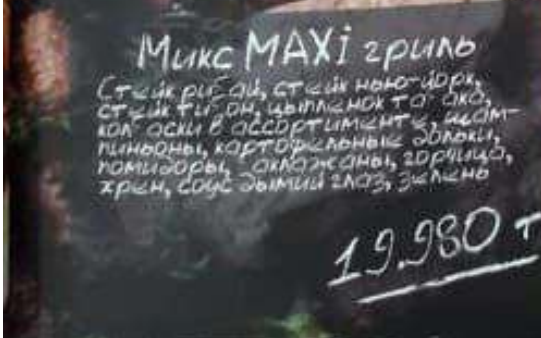 Микс MAXi гриль
Стейк рибай, стейк нью-йорк,
стейк тибон, цыпленок табака,
колбаски в ассортименте, шам-
пиньоны, картофельные дольки,
помидоры, баклажаны, горчица,
хрен, соус дымий глаз, зелень
19.980 т